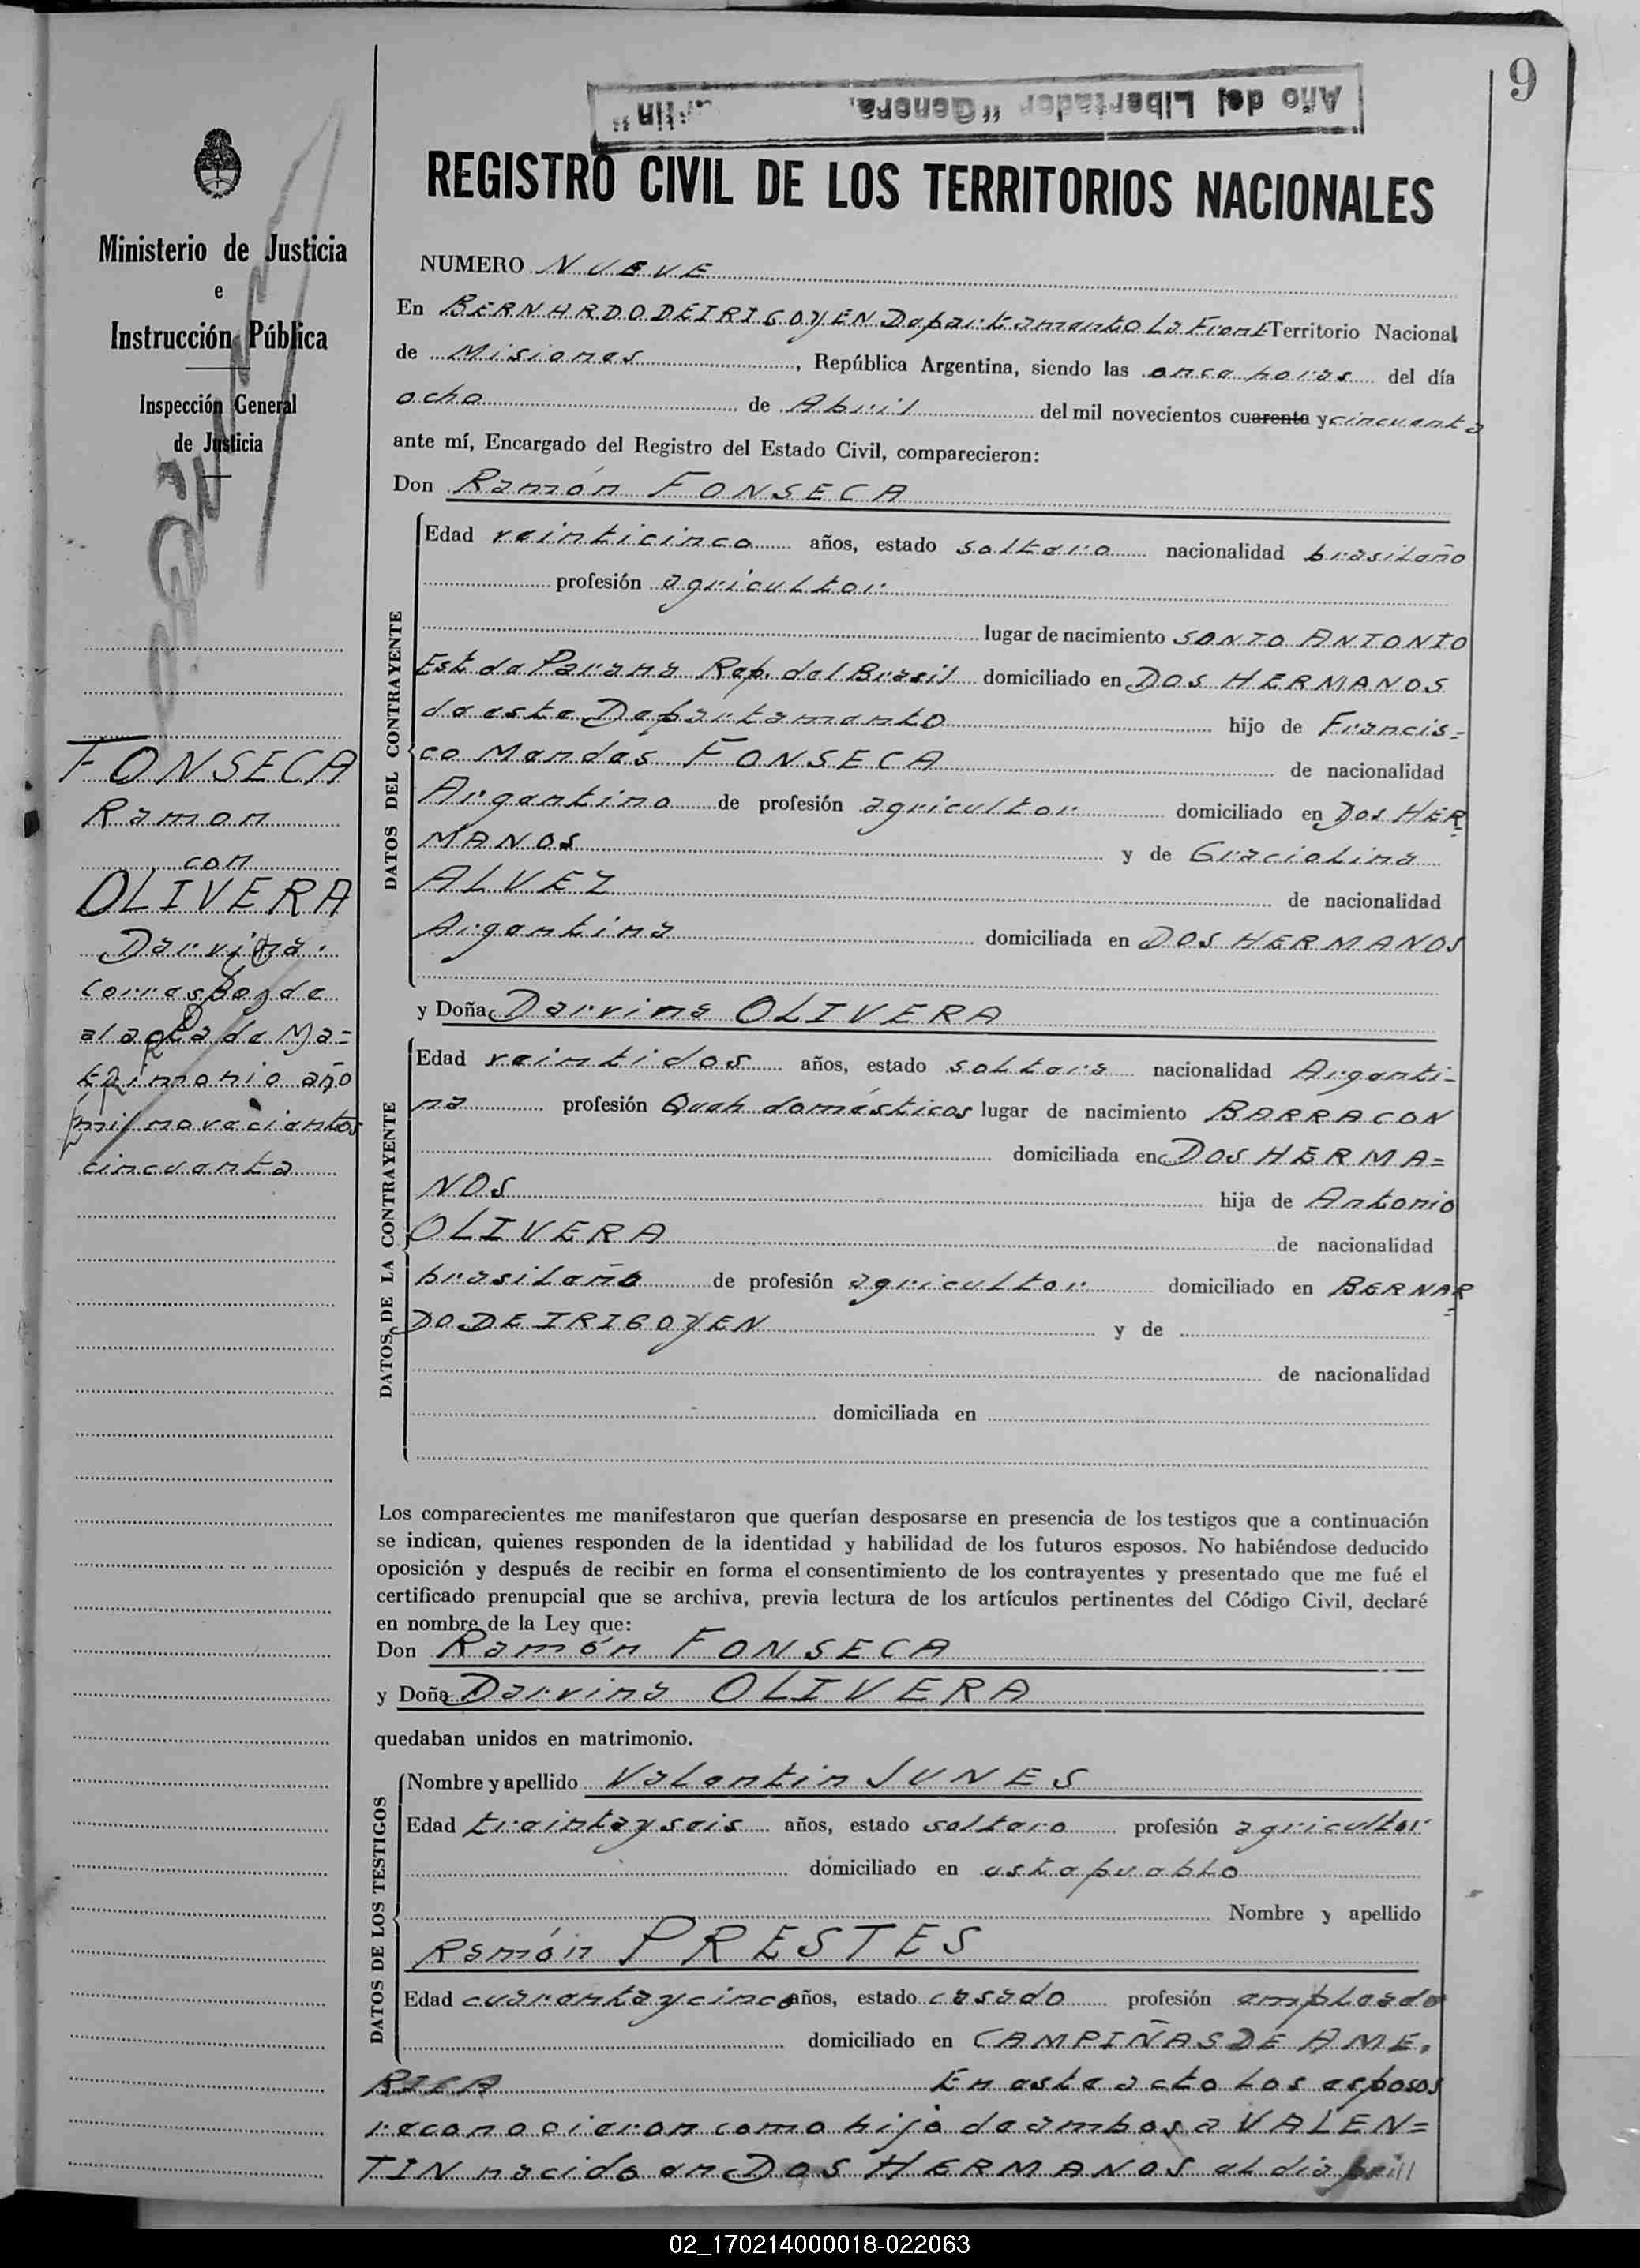 9
Año del Libertador "General
REGISTRO CIVIL DE LOS TERRITORIOS NACIONALES
Ministerio de Justicia
e
Instrucción Pública
Inspección General
de Justicia
FONSECA
Ramon
con
OLIVERA
Darvina.
Corresponde
al acta de Ma=
trimonio año
mil novecientos
cincuenta
NUMERO NUEVE
En BERNARDO DE IRIGOYEN Departamento La Front Territorio Nacional
de Misiones, República Argentina, siendo las once horas del día
ocho de Abril del mil novecientos cuarenta y cincuenta
ante mí, Encargado del Registro del Estado Civil, comparecieron:
Don Ramón FONSECA
DATOS DEL CONTRAYENTE
Edad veinticinco años, estado soltero nacionalidad brasileño
profesión agricultor
lugar de nacimiento SANTO ANTONIO
Est de Parana Rep. del Brasil domiciliado en DOS HERMANOS
de este Departamento hijo de Francis=
co Mendes FONSECA de nacionalidad
Argentino de profesión agricultor domiciliado en DOS HER
MANOS y de Graciolina
ALVEZ de nacionalidad
Argentina domiciliada en DOS HERMANOS
y Doña Darvina OLIVERA
DATOS DE LA CONTRAYENTE
Edad veintidos años, estado soltera nacionalidad Argenti-
na profesión Queh domésticos lugar de nacimiento BARRACON
domiciliada en DOS HERMA=
NOS hija de Antonio
OLIVERA de nacionalidad
brasileño de profesión agricultor domiciliado en BERNAR
DO DE IRIGOYEN y de
de nacionalidad
domiciliada en
Los comparecientes me manifestaron que querían desposarse en presencia de los testigos que a continuación
se indican, quienes responden de la identidad y habilidad de los futuros esposos. No habiéndose deducido
oposición y después de recibir en forma el consentimiento de los contrayentes y presentado que me fué el
certificado prenupcial que se archiva, previa lectura de los artículos pertinentes del Código Civil, declaré
en nombre de la Ley que:
Don Ramón FONSECA
y Doña Darvina OLIVERA
quedaban unidos en matrimonio.
DATOS DE LOS TESTIGOS
Nombre y apellido Valentin JUNES
Edad treinta y seis años, estado soltero profesión agricultor
domiciliado en este pueblo
Nombre y apellido
Ramón PRESTES
Edad cuarenta y cinco años, estado casado profesión empleado
domiciliado en CAMPIÑAS DE AME.
RICA En este acto los esposos
reconocieron como hijo de ambos a VALEN=
TIN nacido en DOS HERMANOS el dia
02_170214000018-022063